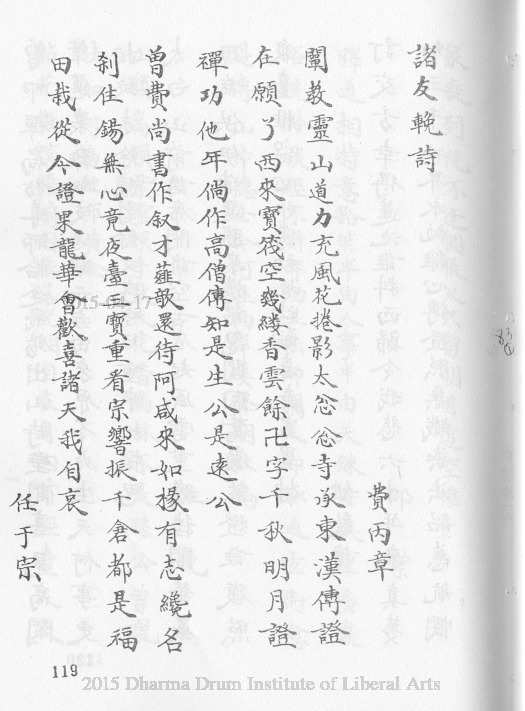 諸友輓詩
費丙章
闡教靈山道力充風花捲影太忩忩寺承東漢傳證
在願了西來寶筏空幾縷香雲餘卍字千秋明月證
禪功他年倘作高僧傳知是生公是遠公
曾費尚書作叙才薤歌還待阿咸來如椽有志纔名
刹住錫無心竟夜臺三寶重看宗響振千倉都是福
田栽從今證果龍華會歡喜諸天我自哀
任于宗
2015-04-17
83
119
2015 Dharma Drum Institute of Liberal Arts